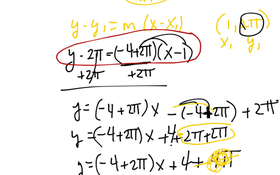 y - y₁ = m (x - x₁) (1, 2π)
x₁ y₁
y - 2π = (-4+2π)(x-1)
+2π +2π
y = (-4+2π)x - (-4+2π) + 2π
y = (-4+2π)x + 4 - 2π + 2π
y = (-4+2π)x + 4